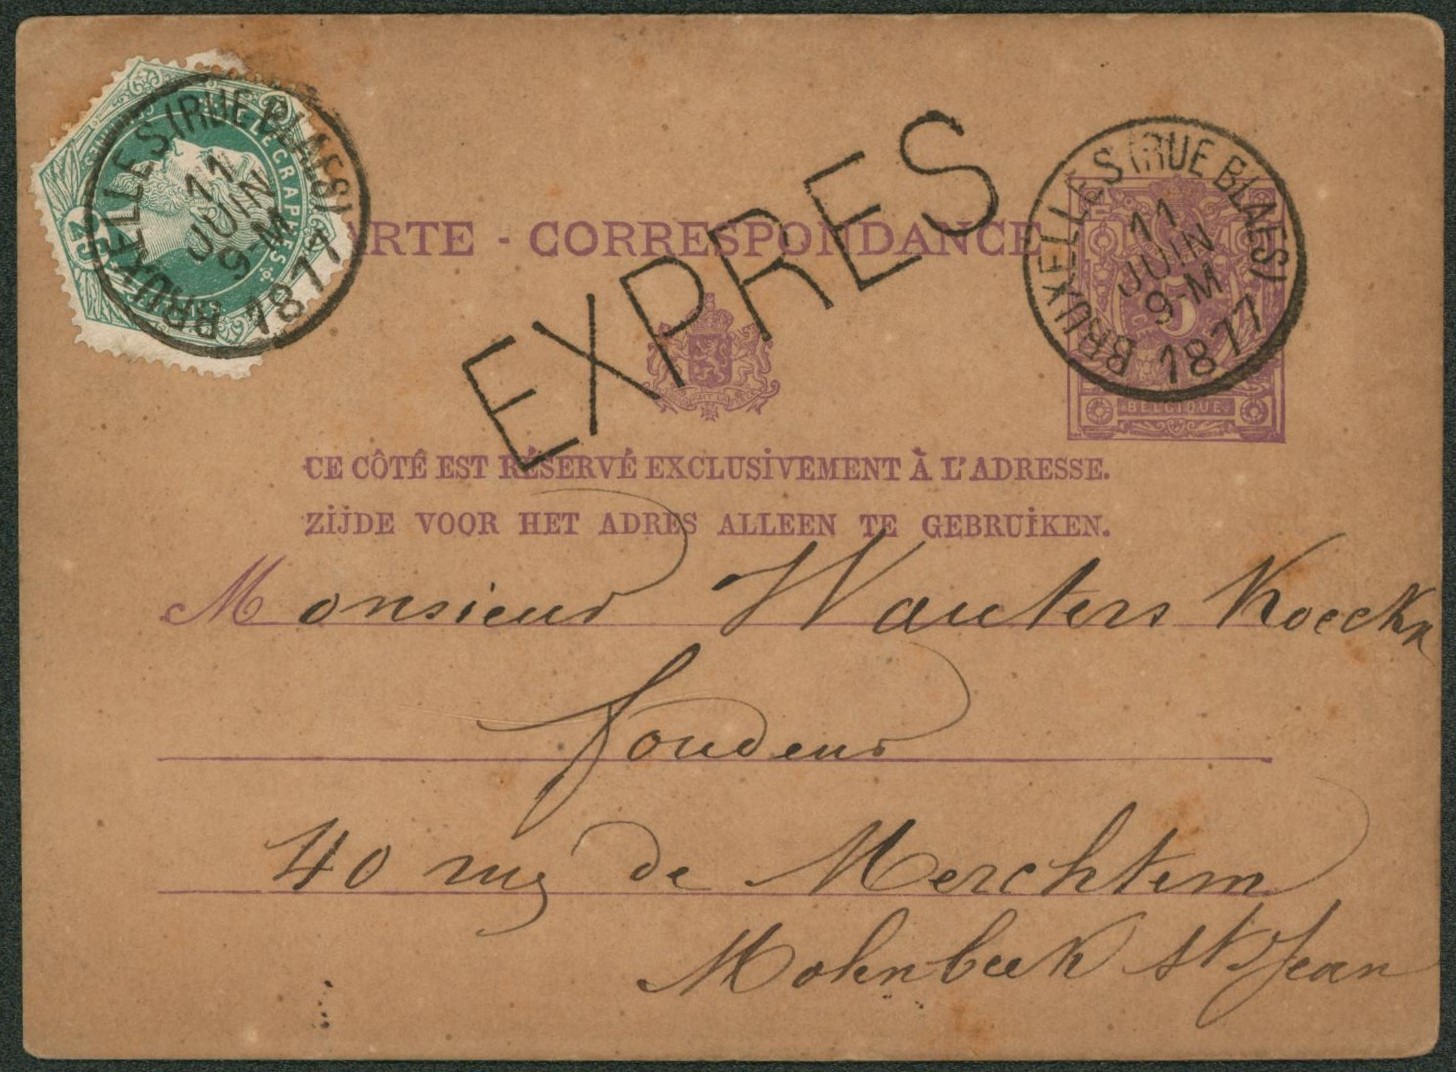 BRUXELLES (RUE BLAES)
11
JUIN
9-M
1877
TÉLÉGRAPHES
25
CARTE - CORRESPONDANCE
EXPRES
BRUXELLES (RUE BLAES)
11
JUIN
9-M
1877
5
BELGIQUE
CE CÔTÉ EST RÉSERVÉ EXCLUSIVEMENT À L'ADRESSE.
ZIJDE VOOR HET ADRES ALLEEN TE GEBRUIKEN.
Monsieur Wauters Koeckx
fondeur
40 rue de Merchtem
Molenbeek St Jean